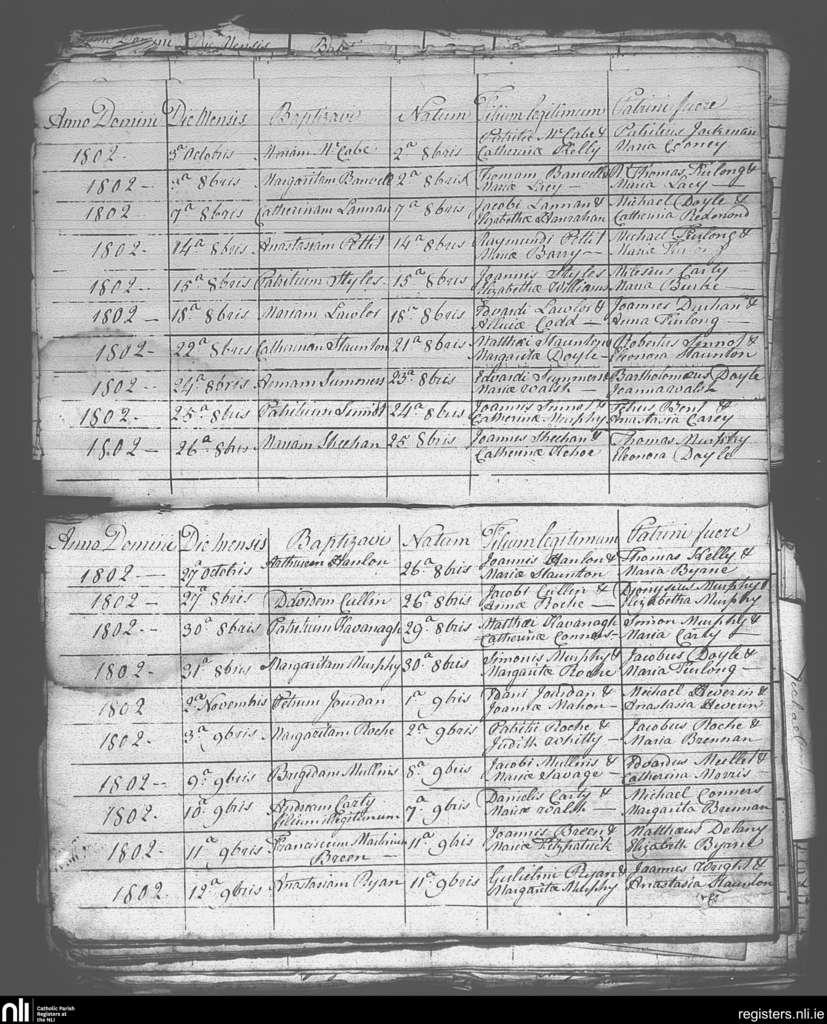 Die Mensis
Anno Domini Die Mensis Baptizavi Natum Filium legitimum Patrini fuere
1802 - 3a Octobris Mariam McCabe 2a 8bris Patritii McCabe & Catherinæ Kelly Patritius Jackman Maria Cooney
1802 - 8bris Margaritam Banvill 2a 8bris Banville Mariæ Thomas Furlong & Maria Lacy
1802 - 7a 8bris Catherinam Lannan 7a 8bris Jacobi Lannan & Elizabethæ Hanrahan Michael Doyle & Catherina Redmond
1802 - 14a 8bris Anastasiam Pettit 14a 8bris Raymundi Pettit Mariæ Barry Michael Furlong & Maria Furlong
1802 - 15a 8bris Patritium Styles 15a 8bris Joannis Styles Elizabethæ Williams Milesius Carty Maria Burke
1802 - 18a 8bris Mariam Lawlor 18a 8bris Edvardi Lawlor & Aliciæ Codd Joannes Duhan & Anna Furlong
1802 - 22a 8bris Catherinam Staunton 21a 8bris Matthæi Staunton Margaritæ Doyle Robertus Sinnot & Eleonora Staunton
1802 - 24a 8bris Annam Summers 23a 8bris Edvardi Summers & Mariæ Walsh Bartholomeus Doyle Joanna Walsh
1802 - 25a 8bris Patritium Sinnot 24a 8bris Joannis Sinnot & Catherinæ Murphy Petrus Bent & Anastasia Carey
1802 - 26a 8bris Mariam Sheehan 25 8bris Joannis Sheehan & Catherinæ Kehoe Thomas Murphy Eleonora Doyle
Anno Domini Die Mensis Baptizavi Natum Filium legitimum Patrini fuere
1802 - 27a Octobris Hanlon 26a 8bris Joannis Hanlon & Mariæ Staunton Thomas Kelly & Maria Byrne
1802 - 27a 8bris Davidem Cullin 26a 8bris Jacobi Cullin & Annæ Roche Dionysius Murphy & Elizabetha Murphy
1802 - 30a 8bris Patritium Kavanagh 29a 8bris Matthæi Kavanagh Catherinæ Connors Simon Murphy & Maria Carty
1802 - 31a 8bris Margaritam Murphy 30a 8bris Simonis Murphy & Margaritæ Roche Jacobus Doyle & Maria Furlong
1802 2a Novembris Petrum Jourdan 1a 9bris Jourdan & Joannæ Mahon Michael Heverin & Anastasia Heverin
1802 - 3a 9bris Margaritam Roche 2a 9bris Patritii Roche & Judith Whitty Jacobus Roche & Maria Brennan
1802 - 9a 9bris Brigidam Mullins 8a 9bris Jacobi Mullins & Mariæ Savage Edvardus Mullet & Catherina Morris
1802 - 10a 9bris Andream Carty filium illegitimum 7a 9bris Danielis Carty & Mariæ Walsh Michael Conners Margarita Brennan
1802 - 11a 9bris Franciscum Martinum Breen 11a 9bris Joannis Breen & Mariæ Fitzpatrick Matthæus Delany Elizabeth Byrne
1802 - 12a 9bris Anastasiam Ryan 11a 9bris Gulielmi Ryan & Margaritæ Murphy Joannes Wright & Anastasia Staunton
nli Catholic Parish Registers at the NLI
registers.nli.ie